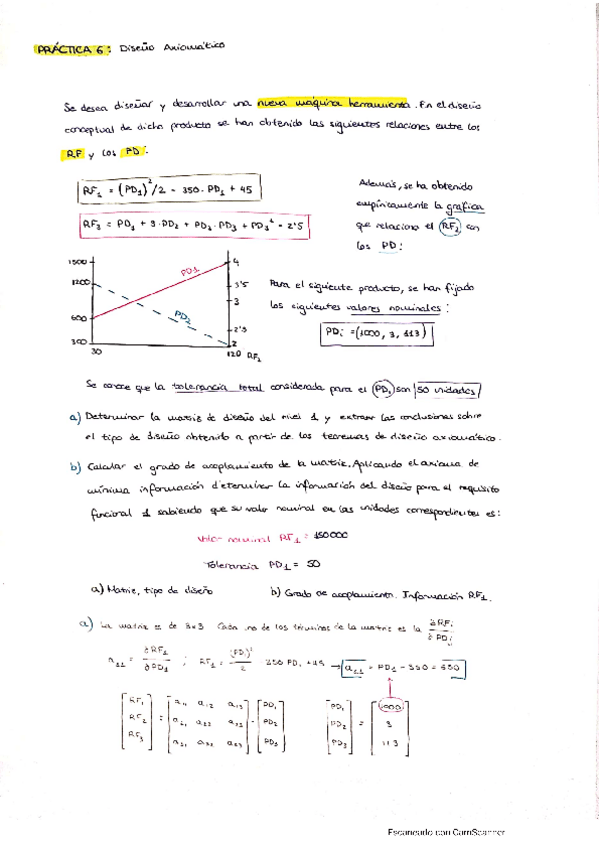 PRÁCTICA 6: Diseño Axiomático
Se desea diseñar y desarrollar una nueva máquina herramienta. En el diseño
conceptual de dicho producto se han obtenido las siguientes relaciones entre los
RF y los PD:
RF₁ = (PD₁)²/2 - 350·PD₁ + 45
RF₃ = PD₁ + 9·PD₂ + PD₂·PD₃ + PD₃² - 2'5
Además, se ha obtenido
empíricamente la gráfica
que relaciona el RF₂ con
los PD:
1500 PD₁ 4
1200 3'5
PD₂ 3
600 2'5
300 2
30 120 RF₂
Para el siguiente producto, se han fijado
los siguientes valores nominales:
PDi = (1000, 3, 113)
Se conoce que la tolerancia total considerada para el PD₁ son 50 unidades
a) Determinar la matriz de diseño del nivel 1 y extraer las conclusiones sobre
el tipo de diseño obtenido a partir de los teoremas de diseño axiomático.
b) Calcular el grado de acoplamiento de la matriz. Aplicando el axioma de
mínima información determinar la información del diseño para el requisito
funcional 1 sabiendo que su valor nominal en las unidades correspondientes es:
Valor nominal RF₁ = 150000
Tolerancia PD₁ = 50
a) Matriz, tipo de diseño b) Grado de acoplamiento. Información RF₁.
a) La matriz es de 3x3 Cada uno de los términos de la matriz es la ∂RFi/∂PDj
a₁₁ = ∂RF₁/∂PD₁ ; RF₁ = (PD₁)²/2 - 350 PD₁ + 45 → a₁₁ = PD₁ - 350 = 650
RF₁ a₁₁ a₁₂ a₁₃ PD₁ PD₁ 1000
RF₂ = a₂₁ a₂₂ a₂₃ · PD₂ PD₂ = 3
RF₃ a₃₁ a₃₂ a₃₃ PD₃ PD₃ 113
Escaneado con CamScanner